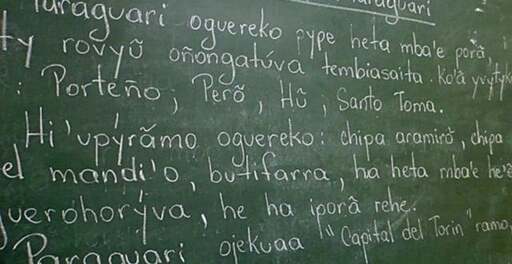 Paraguari
Paraguari oguereko ypype heta mba'e porã,
ty rovyũ oñongatúva tembiasaita. Ko'ã yvyty
: Porteño, Perõ, Hũ, Santo Toma.
Hi'upýrãmo oguereko: chipa aramirõ, chipa
el mandi'o, butifarra, ha heta mba'e he'ẽ
guerohorýva, he ha iporã rehe.
Paraguari ojekuaa "Capital del Torin" ramo,